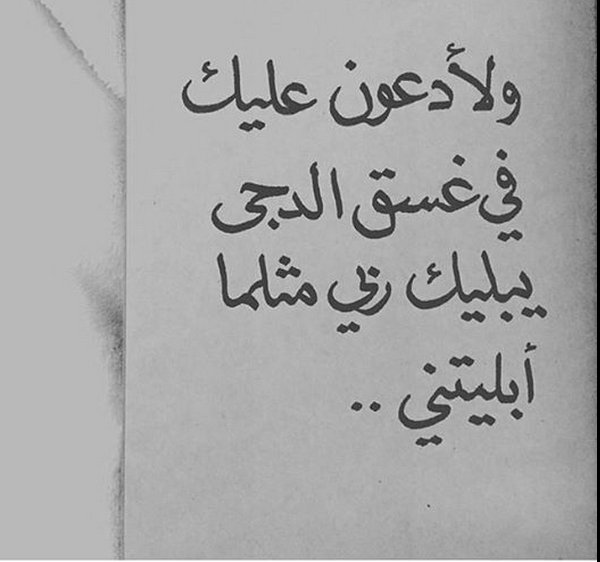 ولأدعون عليك
في غسق الدجى
يبليك ربي مثلما
أبليتني ..